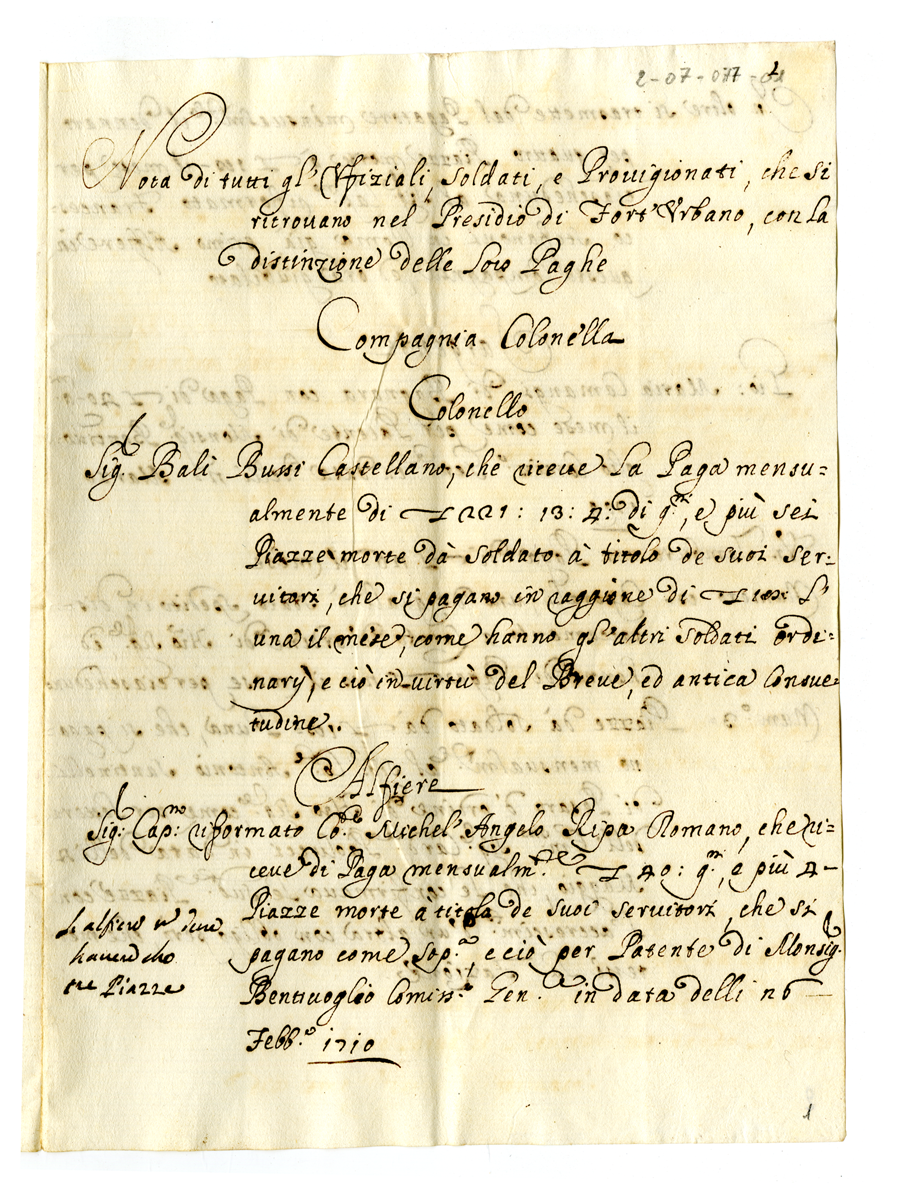 2-07-077-01
Nota di tutti gl' Vffiziali, Soldati, e Provigionati, che si
ritrovano nel Presidio di Fort'Vrbano, con la
distinzione delle loro Paghe
Compagnia Colonella
Colonello
Sig. Balì Bussi Castellano, che riceve la Paga mensu=
almente di 221: 13: 4: di q.ni, e più sei
Piazze morte dà soldato à titolo de suoi ser=
vitori, che si pagano in raggione di L'
una il mese, come hanno gl'altri soldati ordi=
narÿ, e ciò in virtù del Breve, ed antica Consue=
tudine.
Alfiere
Sig: Cap:no riformato Michel' Angelo Ripa Romano, che ri=
ceve di Paga mensualm.te 40: q.ni, e più 4
Piazze morte à titolo de suoi servitori, che si
pagano come sop.a, e ciò per Patente di Monsig.
Bentivoglio Comiss.o Gen.le in data delli 26
Febb.o 1710
L'alfiere
tre Piazze
1